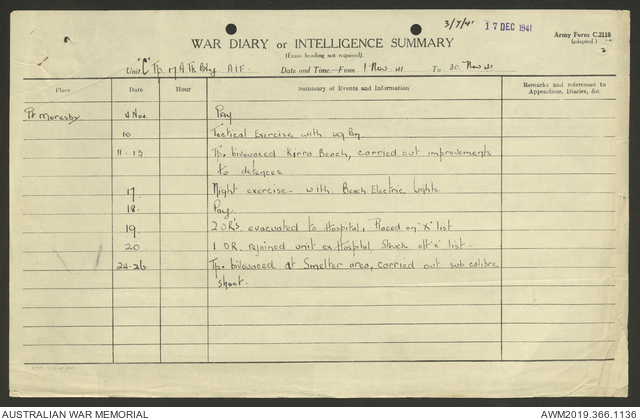 3/7/4 17 DEC 1941
Army Form C.2118
(adapted.)
2
WAR DIARY or INTELLIGENCE SUMMARY
(Erase heading not required).
Unit "C" Tp. 17 A Tk Bty. AIF. Date and Time.—From 1 Nov. 41 To 30. Nov 41
Place Date Hour Summary of Events and Information Remarks and references to
Appendices, Diaries, &c.
Pt Moresby 4 Nov. Pay
10 Tactical Exercise with 49 Bn.
11-13 Tp. bivouaced Kirra Beach, carried out improvements
to defences.
17. Night exercise with Beach Electric Lights
18. Pay.
19. 2 OR's. evacuated to Hospital, Placed on "X" list
20. 1 OR. rejoined unit ex Hospital, Struck off "X" list.
24-26. Tp. bivouaced at Smelter area, carried out sub calibre
shoot.
AUSTRALIAN WAR MEMORIAL AWM2019.366.1136